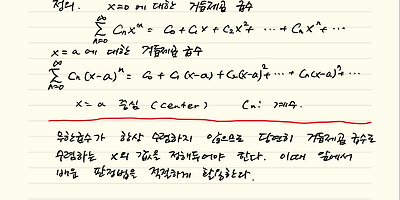 정의. x=0 에 대한 거듭제곱 급수
∞
∑ Cₙxⁿ = C₀ + C₁x + C₂x² + ⋯ + Cₙxⁿ + ⋯
n=0
x=a 에 대한 거듭제곱 급수
∞
∑ Cₙ(x-a)ⁿ = C₀ + C₁(x-a) + C₂(x-a)² + ⋯ + Cₙ(x-a)ⁿ + ⋯
n=0
x=a 중심 (center) Cₙ: 계수.
무한급수가 항상 수렴하지 않으므로 당연히 거듭제곱 급수도
수렴하는 x의 값을 정해두어야 한다. 이때 앞에서
배운 판정법을 적절하게 활용한다.